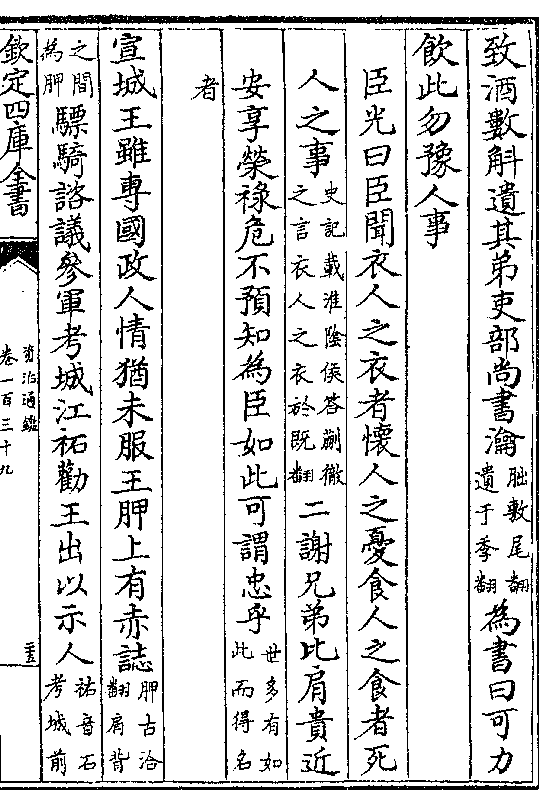 致酒數斛遺其弟吏部尚書瀹朏敷尾翻遺于季翻為書曰可力
飲此勿豫人事
臣光曰臣聞衣人之衣者懷人之憂食人之食者死
人之事史記載淮陰侯答蒯徹之言衣人之衣於既翻二謝兄弟比肩貴近
安享榮祿危不預知為臣如此可謂忠乎世多有如此而得名
者
宣城王雖專國政人情猶未服王胛上有赤誌胛古洽翻肩背
之間為胛驃騎諮議參軍考城江祏勸王出以示人祏音石考城前
欽定四庫全書
資治通鑑
卷一百三十九